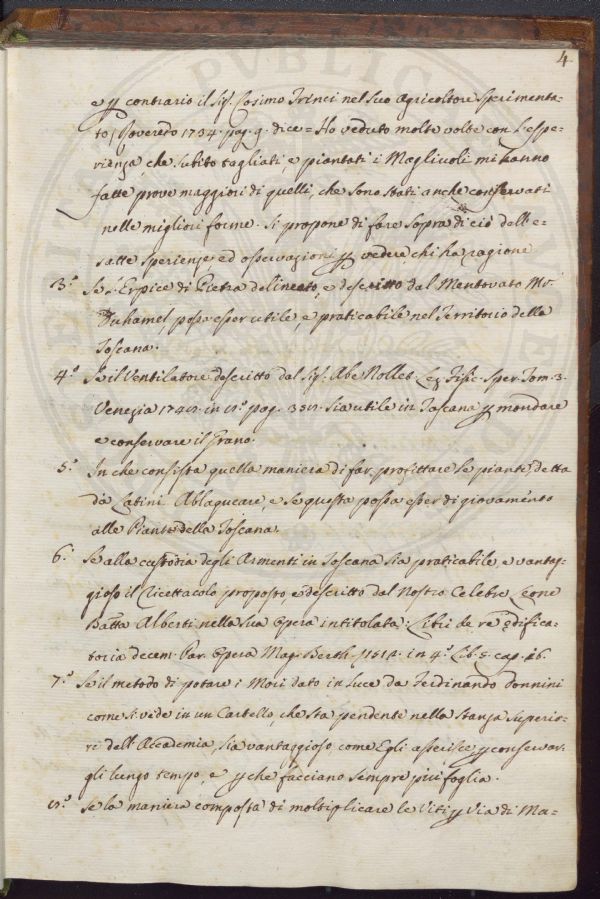 4.
e p contrario il Sig. Cosimo Trinci nel Suo Agricoltore Sperimenta-
to, Rovereto 1734. pag. 9. dice = Ho veduto molte volte con l'espe-
rienza, che subito tagliati, e piantati i Magliuoli mi hanno
fatte prove maggiori di quelli, che sono stati anche conservati
nelle migliori forme. Si propone di fare sopra di ciò dell'e-
satte sperienze, ed osservazioni p vedere, chi ha ragione
3.º Se l'Erpice di Pietra delineato, e descritto dal Mentovato Mr.
Duhamel, possa esser utile, e praticabile nel Territorio della
Toscana.
4.º Se il Ventilatore descritto dal Sig. Abe Nollet Lez. Fisic. Sper. Tom. 3.
Venezia in pag. sia utile in Toscana p mondare
e conservare il Grano.
5.º In che consista quella maniera di far profittare le piante detta
da Latini Ablaqueare, e se questa possa esser di giovamento
alle Piante della Toscana.
6.º Se alla custodia degli Armenti in Toscana sia praticabile, e vantag-
gioso il Ricettacolo proposto e descritto dal Nostro Celebre Leone
Batta Alberti nella sua Opera intitolata: Libri de re ędifica-
toria decem. Par. Opera Mag. Berth. 1512. in 4.º Lib. 5. cap. 16.
7.º Se il metodo di potare i Mori dato in luce da Ferdinando Donnini
come si vede in un Cartello, che sta pendente nella Stanza Superio-
re dell'Accademia, sia vantaggioso, come Egli asserisce p conservar-
gli lungo tempo, e p che facciano sempre più foglia.
8.º Se la maniera composta di moltiplicare le Viti p via di Ma-